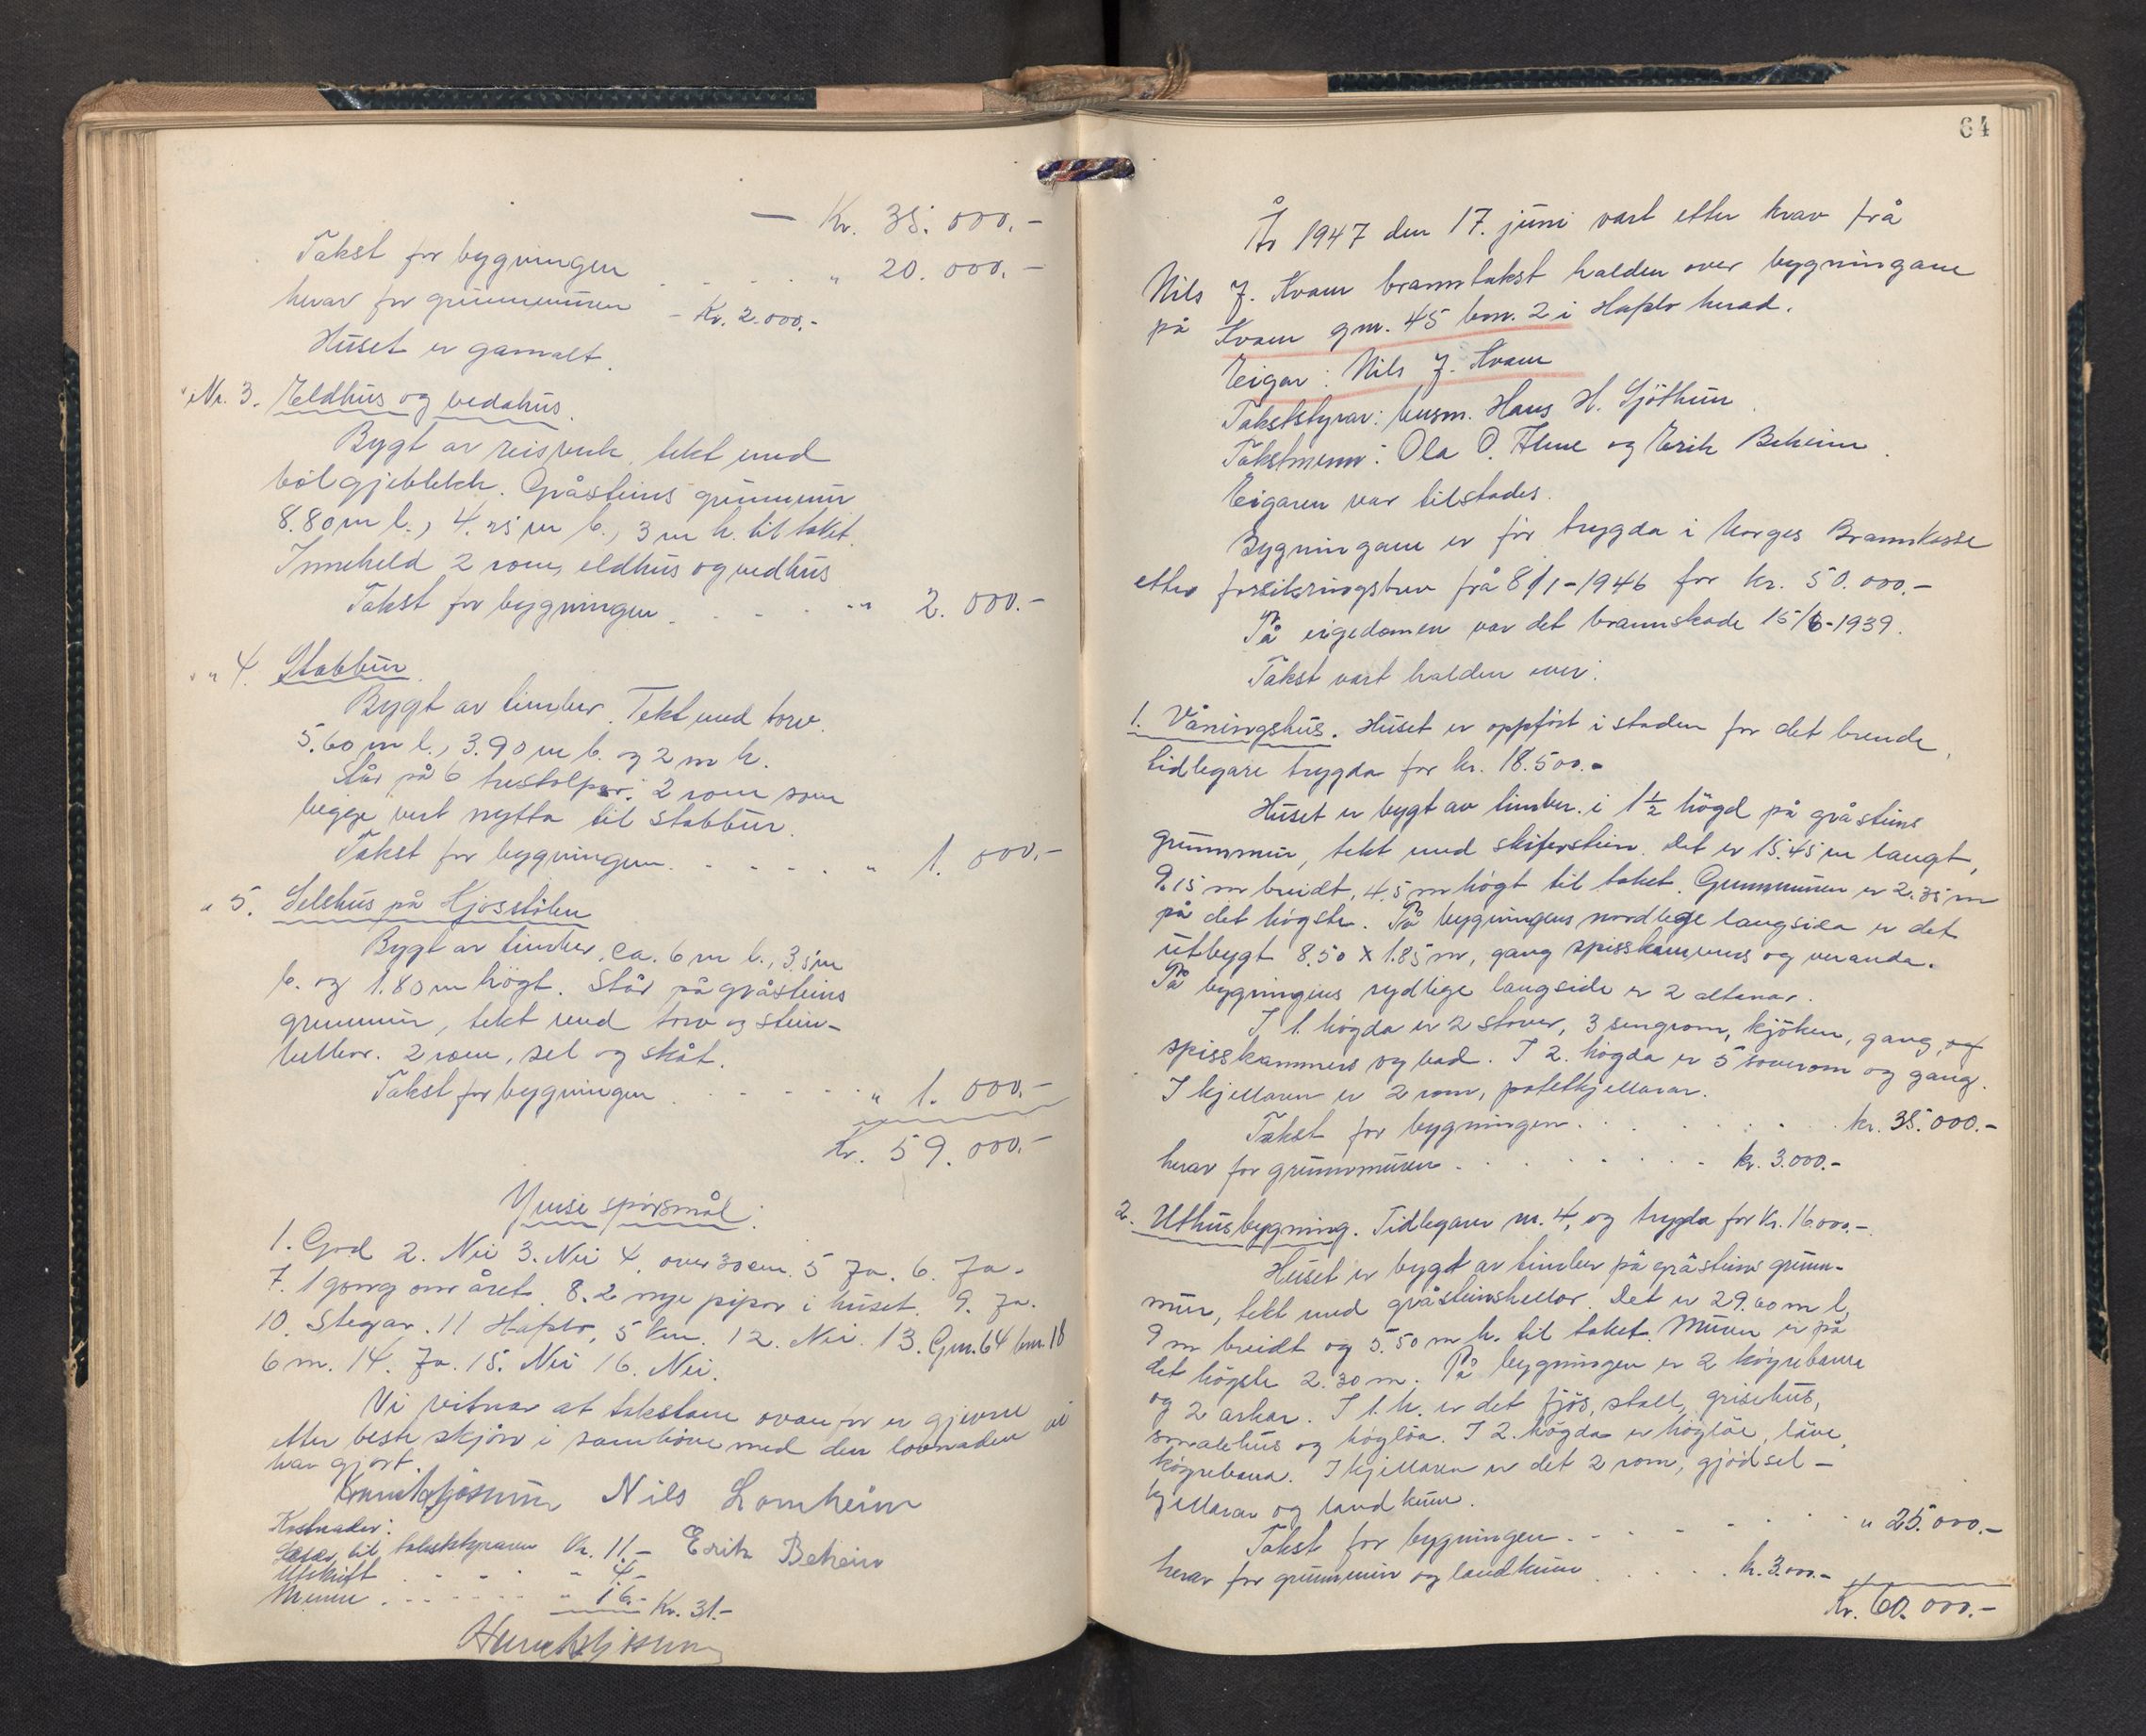 — Kr. 35.000.-
Takst for bygningen . . . . . " 20.000.-
herav for grunnmuren - Kr. 2.000.-
Huset er gamalt.
" Nr. 3. Eldhus og vedahus.
Bygt av reisverk, tekt med
bølgjeblekk. Gråsteins grunnmur
8.80 m l., 4.25 m b., 3 m h. til taket.
Inneheld 2 rom, eldhus og vedhus
Takst for bygningen . . . . " 2.000.-
" " 4. Stabbur.
Bygt av timber. Tekt med torv.
5.60 m l., 3.90 m b. og 2 m h.
Står på 6 trestolpar. 2 rom som
begge vert nytta til stabbur.
Takst for bygningen . . . . . " 1.000.-
" 5. Selshus på Hjøsstølen
Bygt av timber, ca. 6 m l., 3.5 m
b. og 1.80 m högt. Står på gråsteins
grunnmur, tekt med torv og stein-
hellor. 2 rom, sel og skåt.
Takst for bygningen . . . . . " 1.000.-
Kr. 59.000.-
Ymse spörsmål:
1. God 2. Nei 3. Nei 4. over 30 cm. 5 Ja. 6. Ja.
7. 1 gong om året. 8. 2 nye pipor i huset. 9. Ja.
10. Stegar. 11 Hafslo, 5 km. 12. Nei. 13. Gnr. 64 bnr. 18
6 m. 14. Ja. 15. Nei 16. Nei.
Vi vitnar at takstane ovanfor er gjevne
etter beste skjön i samhöve med den lovnaden vi
har gjort.
Nils Lomheim
Kostnader:
til takststyraren Kr. 11.- Erik Beheim
Utskrift . . . . " 4.-
Menn . . . . . . " 16.- Kr. 31.-
64
År 1947 den 17. juni vart etter krav frå
Nils J. Kvam branntakst halden over bygningane
på Kvam gnr. 45 bnr. 2 i Hafslo herad.
Eigar: Nils J. Kvam
Takststyrar: busm. Hans H. Sjöthun.
Takstmenn: Ola O. Alme og Erik Beheim.
Eigaren var tilstades.
Bygningane er för trygda i Norges Brannkasse
etter forsikringsbrev frå 8/1-1946 for kr. 50.000.-
På eigedomen var det brannskade 15/6-1939.
Takst vart halden over:
1. Våningshus. Huset er oppfört i staden for det brende,
tidlegare trygda for kr. 18.500.-
Huset er bygt av timber i 1½ högd på gråsteins
grunnmur, tekt med skiferstein. Det er 15.45 m langt,
9.15 m breidt, 4.5 m högt til taket. Grunnmuren er 2.35 m
på det högste. På bygningens nordlege langsida er det
utbygt 8.50 x 1.85 m, gang spisskammers og veranda.
På bygningens sydlige langside er 2 altanar.
I 1. högda er 2 stover, 3 sengrom, kjöken, gang, og
spisskammers og bad. I 2. högda er 5 soverom og gang.
I kjellaren er 2 rom, potetkjellarar.
Takst for bygningen . . . . . . . kr. 35.000.-
herav for grunnmuren . . . . . . . kr. 3.000.-
2. Uthusbygning. Tidlegare nr. 4, og trygda for kr. 16.000.-
Huset er bygt av timber på gråsteins grunn-
mur, tekt med gråsteinshellor. Det er 29.60 m l,
9 m breidt og 5.50 m h. til taket. Muren er på
det högste 2.30 m. På bygningen er 2 köyrebanne
og 2 arkar. I 1. h. er det fjös, stall, grisehus,
smalehus og höylöa. I 2. högda er höylöe, låve,
köyrebana. I kjellaren er det 2 rom, gjödsel-
kjellarar og landkum.
Takst for bygningen . - . . . . . . " 25.000.-
herav for grunnmur og landkum . . . . kr. 3.000.-
Kr. 60.000.-